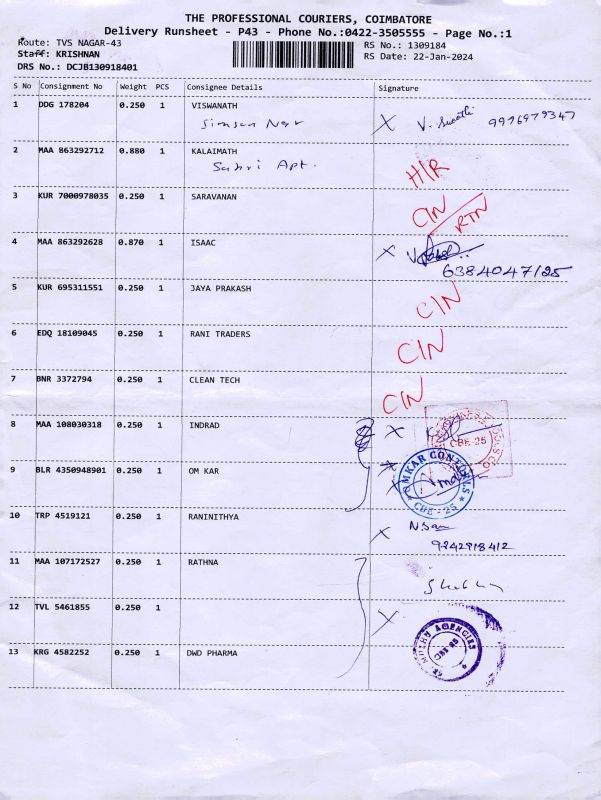 THE PROFESSIONAL COURIERS, COIMBATORE
Delivery Runsheet - P43 - Phone No.:0422-3505555 - Page No.:1
Route: TVS NAGAR-43
Staff: KRISHNAN
DRS No.: DCJB130918401
RS No.: 1309184
RS Date: 22-Jan-2024
S No Consignment No Weight PCS Consignee Details Signature
1 DDG 178204 0.250 1 VISWANATH
9976979347
2 MAA 863292712 0.880 1 KALAIMATH
Sabri Apt. H/R
3 KUR 7000978035 0.250 1 SARAVANAN
C/N RTN
4 MAA 863292628 0.870 1 ISAAC
5 KUR 695311551 0.250 1 JAYA PRAKASH
C/N
6 EDQ 18109045 0.250 1 RANI TRADERS
C/N
7 BNR 3372794 0.250 1 CLEAN TECH
C/N
8 MAA 108030318 0.250 1 INDRAD
CBE-25
9 BLR 4350948901 0.250 1 OM KAR
CBE - 25
10 TRP 4519121 0.250 1 RANINITHYA
9242918412
11 MAA 107172527 0.250 1 RATHNA
12 TVL 5461855 0.250 1
AGENCIES
13 KRG 4582252 0.250 1 DWD PHARMA